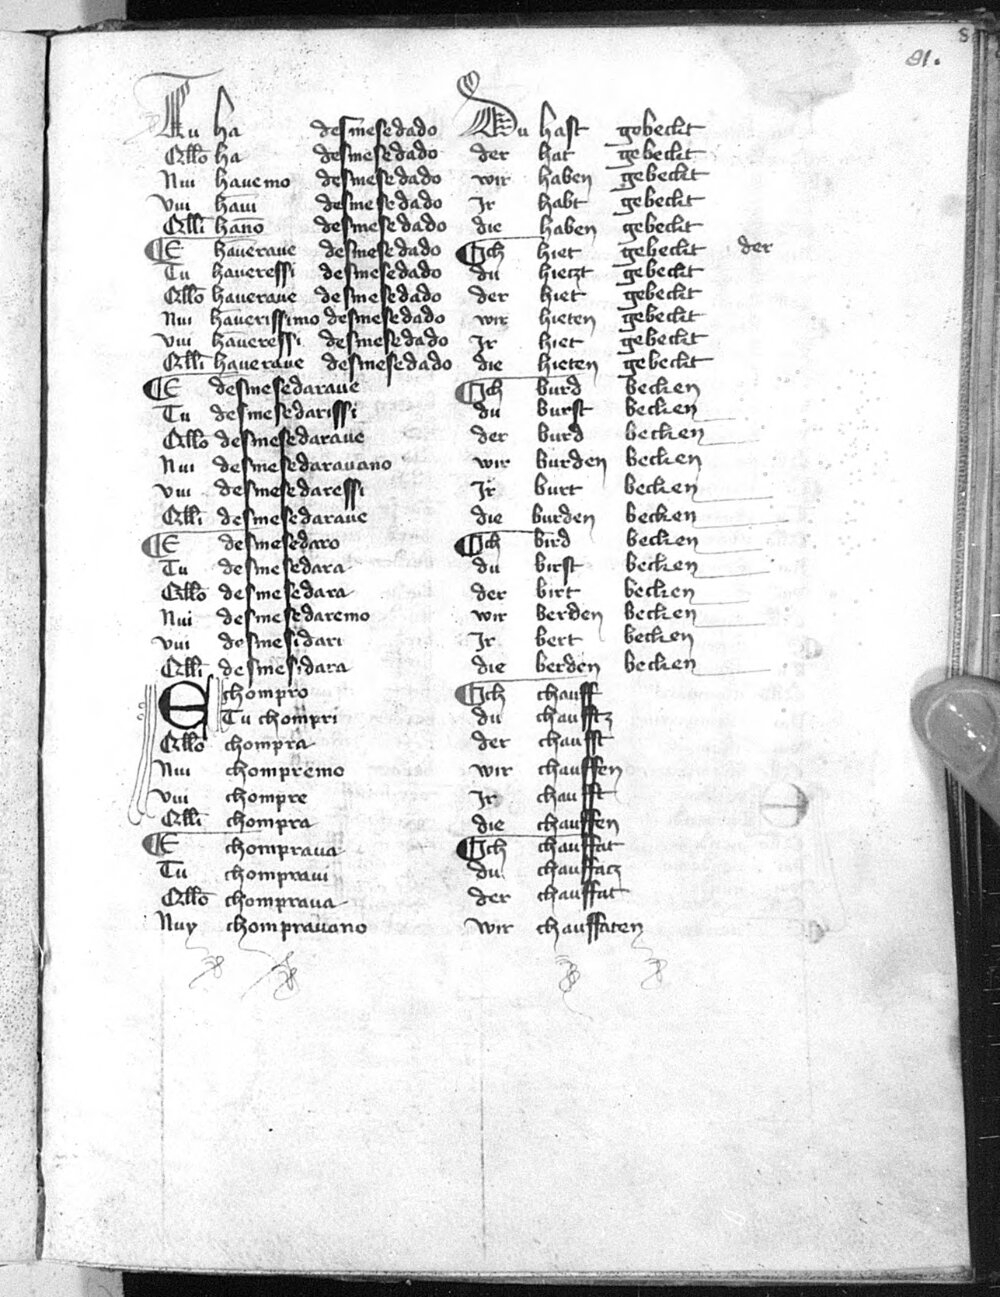 S
91.
Tu ha desmesedado Du hast gebeckt
Qllo ha desmesedado der hat gebeckt
Nui hauemo desmesedado wir haben gebeckt
vui haui desmesedado Ir habt gebeckt
Qlli hano desmesedado die haben gebeckt
E haueraue desmesedado Ich hiet gebeckt der
Tu haueressi desmesedado du hieczt gebeckt
Qllo haueraue desmesedado der hiet gebeckt
Nui hauerissimo desmesedado wir hieten gebeckt
vui haueressi desmesedado Ir hiet gebeckt
Qlli haueraue desmesedado die hieten gebeckt
E desmesedaraue Ich burd becken
Tu desmesedarissi du burst becken
Qllo desmesedaraue der burd becken
Nui desmesedarauano wir burden becken
vui desmesedaressi Ir burt becken
Qlli desmesedaraue die burden becken
E desmesedaro Ich bird becken
Tu desmesedara du birst becken
Qllo desmesedara der birt becken
Nui desmesedaremo wir berden becken
vui desmesidari Ir bert becken
Qlli desmesidara die berden becken
E chompro Ich chauff
Tu chompri du chaufftz
Qllo chompra der chaufft
Nui chompremo wir chauffen
vui chompre Ir chaufft
Qlli chompra die chauffen
E chompraua Ich chauffat
Tu chomprauui du chauffatz
Qllo chompraua der chauffat
Nuy chomprauano wir chauffaten